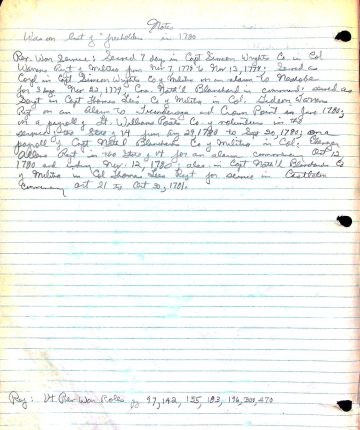 Notes
was on list of freeholders in 1780
Rev. War Service: Served 7 days in Capt Simeon Wrights Co. in Col
Warrens Regt of Militia from Nov 7, 1779 to Nov 13, 1779; Served as
Corpl in Capt Simeon Wrights Co of Militia on an alarm to
for 3 days Nov 22, 1779, Nath'l Blanchard in command; served as
Sergt in Capt Thomas Co of Militia in Col. Gideon Warrens
Regt on an Alarm to Ticonderoga and Crown Point in June 1780;
on a payroll of Lt. Williams Co of volunteers in the
service of the State of 14 from Aug 29, 1780 to Sept 30, 1780; on a
payroll of Capt Nath'l Blanchard Co of Militia in Col.
Allens Regt in the State of Vt for an alarm commencing Oct 12
1780 and ending Nov. 12, 1780; also in Capt Nath'l Blanchards Co
of Militia in Col Thomas Lees Regt for service in Castleton
commencing Oct 21 to Oct 30, 1781.
Ref: Vt Rev War Rolls pg 97, 142, 155, 183, 196, 303, 470